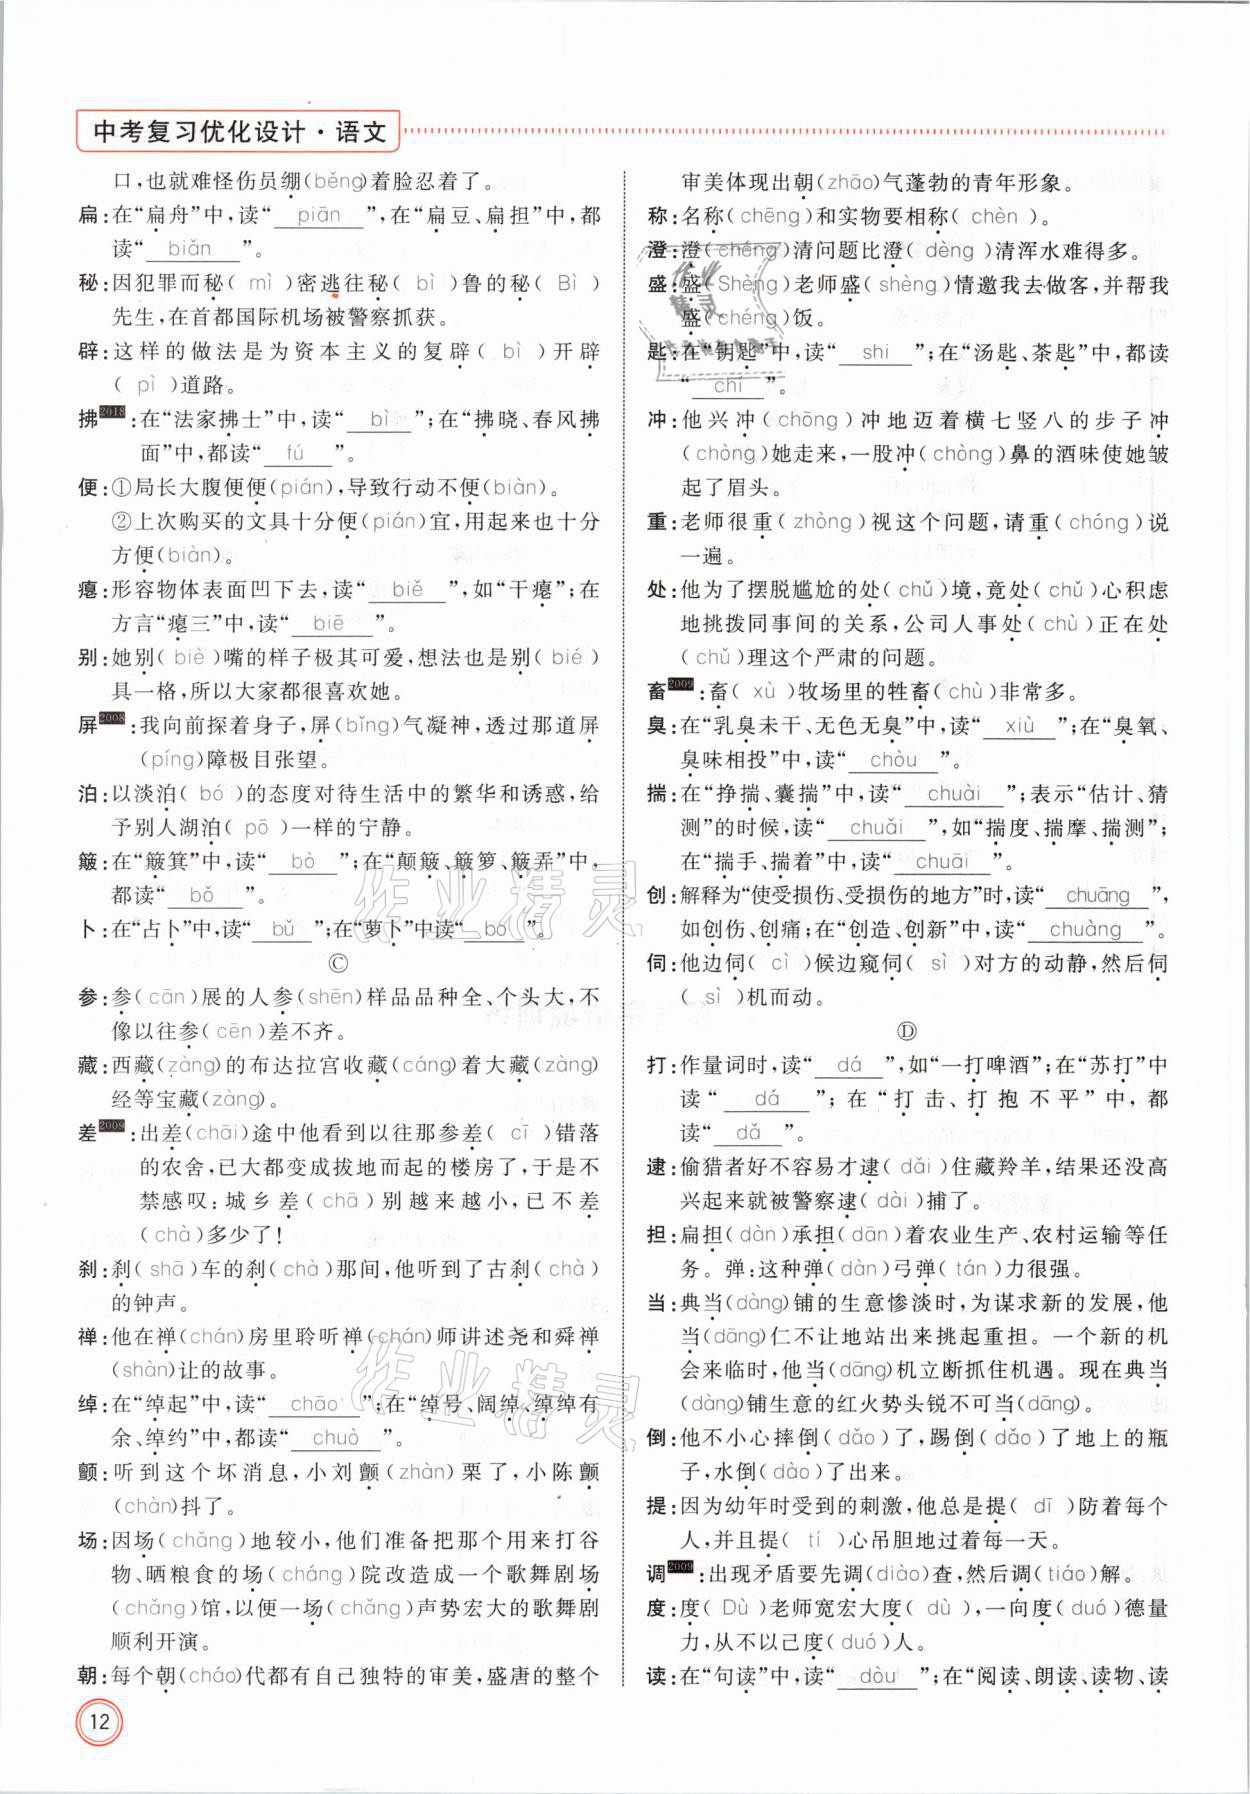 中考复习优化设计·语文
口,也就难怪伤员绷(běng)着脸忍着了。
扁:在“扁舟”中,读“ piān ”,在“扁豆、扁担”中,都
读“ biǎn ”。
秘:因犯罪而秘( mì )密逃往秘( bì )鲁的秘( Bì )
先生,在首都国际机场被警察抓获。
辟:这样的做法是为资本主义的复辟( bì )开辟
( pì )道路。
拂2018:在“法家拂士”中,读“ bì ”;在“拂晓、春风拂
面”中,都读“ fú ”。
便:①局长大腹便便(pián),导致行动不便(biàn)。
②上次购买的文具十分便(pián)宜,用起来也十分
方便(biàn)。
瘪:形容物体表面凹下去,读“ biě ”,如“干瘪”;在
方言“瘪三”中,读“ biē ”。
别:她别(biè)嘴的样子极其可爱,想法也是别(bié)
具一格,所以大家都很喜欢她。
屏2008:我向前探着身子,屏(bǐng)气凝神,透过那道屏
(píng)障极目张望。
泊:以淡泊( bó )的态度对待生活中的繁华和诱惑,给
予别人湖泊( pō )一样的宁静。
簸:在“簸箕”中,读“ bò ”;在“颠簸、簸箩、簸弄”中,
都读“ bǒ ”。
卜:在“占卜”中,读“ bǔ ”;在“萝卜”中读“ bo ”。
Ⓒ
参:参(cān)展的人参(shēn)样品品种全、个头大,不
像以往参(cēn)差不齐。
藏:西藏(zàng)的布达拉宫收藏(cáng)着大藏(zàng)
经等宝藏(zàng)。
差2009:出差(chāi)途中他看到以往那参差( cī )错落
的农舍,已大都变成拔地而起的楼房了,于是不
禁感叹:城乡差( chā )别越来越小,已不差
(chà)多少了!
刹:刹( shā )车的刹( chà )那间,他听到了古刹( chà )
的钟声。
禅:他在禅(chán)房里聆听禅(chán)师讲述尧和舜禅
(shàn)让的故事。
绰:在“绰起”中,读“ chāo ”;在“绰号、阔绰、绰绰有
余、绰约”中,都读“ chuò ”。
颤:听到这个坏消息,小刘颤(zhàn)栗了,小陈颤
(chàn)抖了。
场:因场(chǎng)地较小,他们准备把那个用来打谷
物、晒粮食的场(cháng)院改造成一个歌舞剧场
(chǎng)馆,以便一场(chǎng)声势宏大的歌舞剧
顺利开演。
朝:每个朝(cháo)代都有自己独特的审美,盛唐的整个
12
审美体现出朝(zhāo)气蓬勃的青年形象。
称:名称(chēng)和实物要相称(chèn)。
澄:澄(chéng)清问题比澄(dèng)清浑水难得多。
盛:盛(Shèng)老师盛(shèng)情邀我去做客,并帮我
盛(chéng)饭。
匙:在“钥匙”中,读“ shi ”;在“汤匙、茶匙”中,都读
“ chí ”。
冲:他兴冲(chōng)冲地迈着横七竖八的步子冲
(chòng)她走来,一股冲(chòng)鼻的酒味使她皱
起了眉头。
重:老师很重(zhòng)视这个问题,请重(chóng)说
一遍。
处:他为了摆脱尴尬的处(chǔ)境,竟处(chǔ)心积虑
地挑拨同事间的关系,公司人事处(chù)正在处
(chǔ)理这个严肃的问题。
畜2009:畜( xù )牧场里的牲畜(chù)非常多。
臭:在“乳臭未干、无色无臭”中,读“ xiù ”;在“臭氧、
臭味相投”中,读“ chòu ”。
揣:在“挣揣、囊揣”中,读“ chuài ”;表示“估计、猜
测”的时候,读“ chuǎi ”,如“揣度、揣摩、揣测”;
在“揣手、揣着”中,读“ chuāi ”。
创:解释为“使受损伤、受损伤的地方”时,读“ chuāng ”,
如创伤、创痛;在“创造、创新”中,读“ chuàng ”。
伺:他边伺( cì )候边窥伺( sì )对方的动静,然后伺
( sì )机而动。
Ⓓ
打:作量词时,读“ dá ”,如“一打啤酒”;在“苏打”中
读“ dá ”;在“打击、打抱不平”中,都
读“ dǎ ”。
逮:偷猎者好不容易才逮( dǎi )住藏羚羊,结果还没高
兴起来就被警察逮( dài )捕了。
担:扁担( dàn )承担( dān )着农业生产、农村运输等任
务。弹:这种弹( dàn )弓弹( tán )力很强。
当:典当(dàng)铺的生意惨淡时,为谋求新的发展,他
当(dāng)仁不让地站出来挑起重担。一个新的机
会来临时,他当(dāng)机立断抓住机遇。现在典当
(dàng)铺生意的红火势头锐不可当(dāng)。
倒:他不小心摔倒( dǎo )了,踢倒( dǎo )了地上的瓶
子,水倒( dào )了出来。
提:因为幼年时受到的刺激,他总是提( dī )防着每个
人,并且提( tí )心吊胆地过着每一天。
调2009:出现矛盾要先调(diào)查,然后调(tiáo)解。
度:度( Dù )老师宽宏大度( dù ),一向度(duó)德量
力,从不以己度(duó)人。
读:在“句读”中,读“ dòu ”;在“阅读、朗读、读物、读